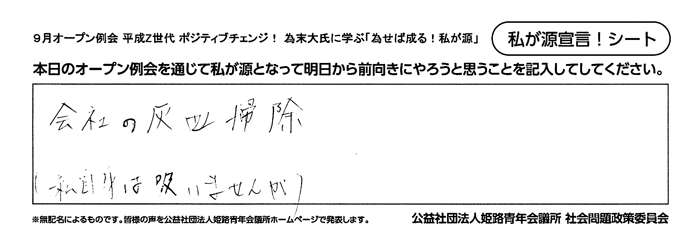 9月オープン例会 平成Z世代 ポジティブチェンジ! 為末大氏に学ぶ「為せば成る!私が源」
私が源宣言!シート
本日のオープン例会を通じて私が源となって明日から前向きにやろうと思うことを記入してしてください。
会社の灰皿掃除
(私自身は吸いませんが)
※無記名によるものです。皆様の声を公益社団法人姫路青年会議所ホームページで発表します。
公益社団法人姫路青年会議所 社会問題政策委員会